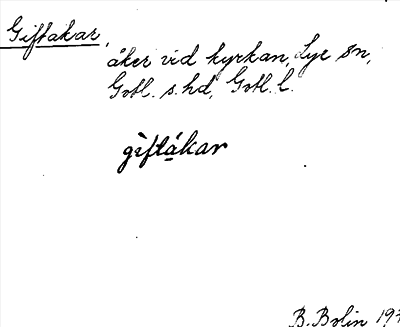 Giftakar,
åker vid kyrkan, Lye sn,
Gotl. s. hd, Gotl. l.
gìftákar
B. Bolin 193